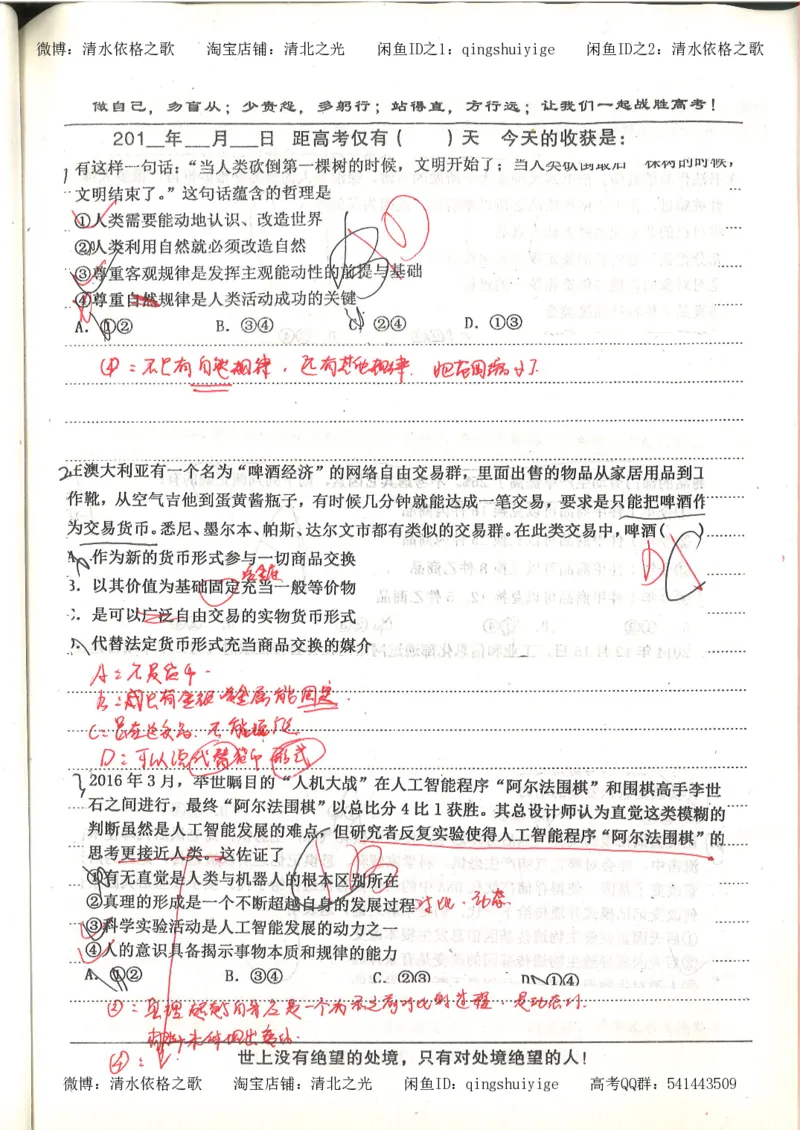 微博：清水依格之歌 淘宝店铺：清北之光 闲鱼ID之1：qingshuiyige 闲鱼ID之2：清水依格之歌
做自己，勿盲从；少责怨，多躬行；站得直，方行远；让我们一起战胜高考！
201__年___月___日 距高考仅有（ ）天 今天的收获是：
1 有这样一句话：“当人类砍倒第一棵树的时候，文明开始了；当人类砍倒最后一棵树的时候，
文明结束了。”这句话蕴含的哲理是
①人类需要能动地认识、改造世界
②人类利用自然就必须改造自然
③尊重客观规律是发挥主观能动性的前提与基础
④尊重自然规律是人类活动成功的关键
A．①② B．③④ C．②④ D．①③
B D
④：不只有自然规律，还有其他规律.
2 在澳大利亚有一个名为“啤酒经济”的网络自由交易群，里面出售的物品从家居用品到工
作靴，从空气吉他到蛋黄酱瓶子，有时候几分钟就能达成一笔交易，要求是只能把啤酒作
为交易货币。悉尼、墨尔本、帕斯、达尔文市都有类似的交易群。在此类交易中，啤酒（ ）
A．作为新的货币形式参与一切商品交换
B．以其价值为基础固定充当一般等价物
C．是可以广泛自由交易的实物货币形式
D．代替法定货币形式充当商品交换的媒介
D
A：不是货币.
B：只有金银贵金属能固定.
C：只在这交易.不能
D：可以说代替货币形式
3 2016年3月，举世瞩目的“人机大战”在人工智能程序“阿尔法围棋”和围棋高手李世
石之间进行，最终“阿尔法围棋”以总比分4比1获胜。其总设计师认为直觉这类模糊的
判断虽然是人工智能发展的难点，但研究者反复实验使得人工智能程序“阿尔法围棋”的
思考更接近人类。这佐证了
B
①有无直觉是人类与机器人的根本区别所在
②真理的形成是一个不断超越自身的发展过程 对比.动态
③科学实验活动是人工智能发展的动力之一
④人的意识具备揭示事物本质和规律的能力
A．①② B．③④ C．②③ D．①④
②：真理超越自身应是一个对比的过程，是动态的.
材料未体现出
④：
世上没有绝望的处境，只有对处境绝望的人！
微博：清水依格之歌 淘宝店铺：清北之光 闲鱼ID：qingshuiyige 高考QQ群：541443509